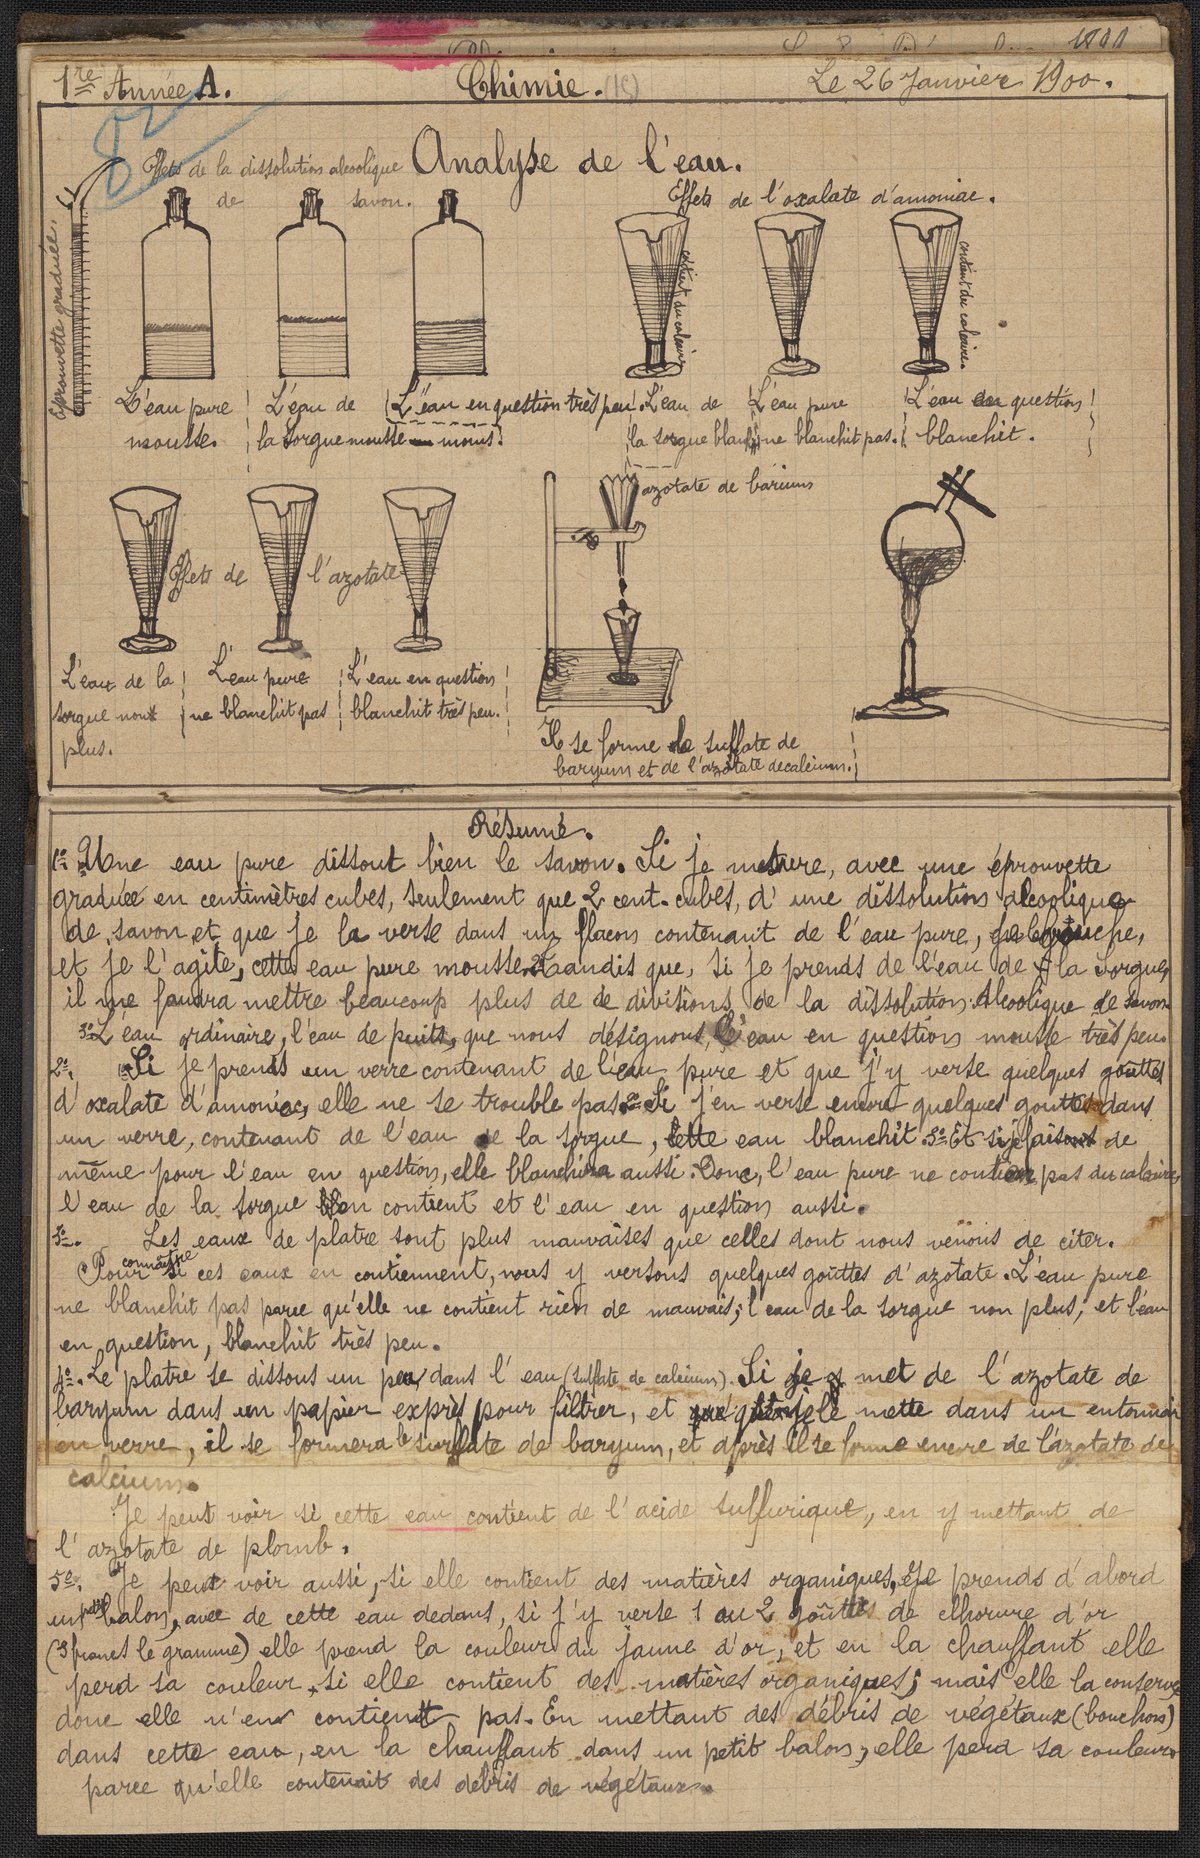 1re Année A.
Chimie.
Le 26 Janvier 1900.
Analyse de l'eau.
Effets de la dissolution alcoolique
de savon.
Effets de l'oxalate d'amoniac.
éprouvette graduée
contient du calcaire
contient du calcaire.
L'eau pure
mousse.
L'eau de
la sorgue mousse moins.
L'eau en question très peu.
L'eau de
la sorgue blanchit
L'eau pure
ne blanchit pas.
L'eau en question
blanchit.
azotate de barium
Effets de l'azotate
L'eau de la
sorgue non
plus.
L'eau pure
ne blanchit pas
L'eau en question
blanchit très peu.
Il se forme de suffate de
baryum et de l'azotate de calcium.
Résumé.
1o Une eau pure dissout bien le savon. Si je mesure, avec une éprouvette
graduée en centimètres cubes, seulement que 2 cent. cubes, d'une dissolution alcoolique
de savon et que je la verse dans un flacon contenant de l'eau pure,
et je l'agite, cette eau pure mousse. 2o Tandis que, si je prends de l'eau de la Sorgue,
il me faudra mettre beaucoup plus de divisions de la dissolution alcoolique de savon.
3o L'eau ordinaire, l'eau de puits, que nous désignons, l'eau en question mousse très peu.
2o. Si je prends un verre contenant de l'eau pure et que j'y verse quelques gouttes
d'oxalate d'amoniac, elle ne se trouble pas. 2o Si j'en verse encore quelques gouttes dans
un verre, contenant de l'eau de la sorgue, cette eau blanchit. 3o Et si je fais de
même pour l'eau en question, elle blanchira aussi. Donc, l'eau pure ne contient pas du calcaire
l'eau de la sorgue en contient et l'eau en question aussi.
3o. Les eaux de platre sont plus mauvaises que celles dont nous venons de citer.
Pour connaître si ces eaux en contiennent, nous y versons quelques goûttes d'azotate. L'eau pure
ne blanchit pas parce qu'elle ne contient rien de mauvais, l'eau de la sorgue non plus, et l'eau
en question, blanchit très peu.
4o. Le platre se dissous un peu dans l'eau (sulfate de calcium). Si je met de l'azotate de
baryum dans un papier exprès pour filtrer, et que je le mette dans un entonnoir
en verre, il se formera le surffate de baryum, et après il se forme encore de l'azotate de
calcium.
Je peut voir si cette eau contient de l'acide suffurique, en y mettant de
l'azotate de plomb.
5o. Je peut voir aussi, si elle contient des matières organiques. Je prends d'abord
un petit balon, avec de cette eau dedans, si j'y verse 1 ou 2 goûttes de clhorure d'or
(3 francs le gramme) elle prend la couleur du jaune d'or, et en la chauffant elle
perd sa couleur, si elle contient des matières organiques; mais elle la conserve
donc elle n'en contient pas. En mettant des débris de végétaux (bouchons)
dans cette eau, en la chauffant dans un petit balon, elle perd sa couleur
parce qu'elle contenait des débris de végétaux.